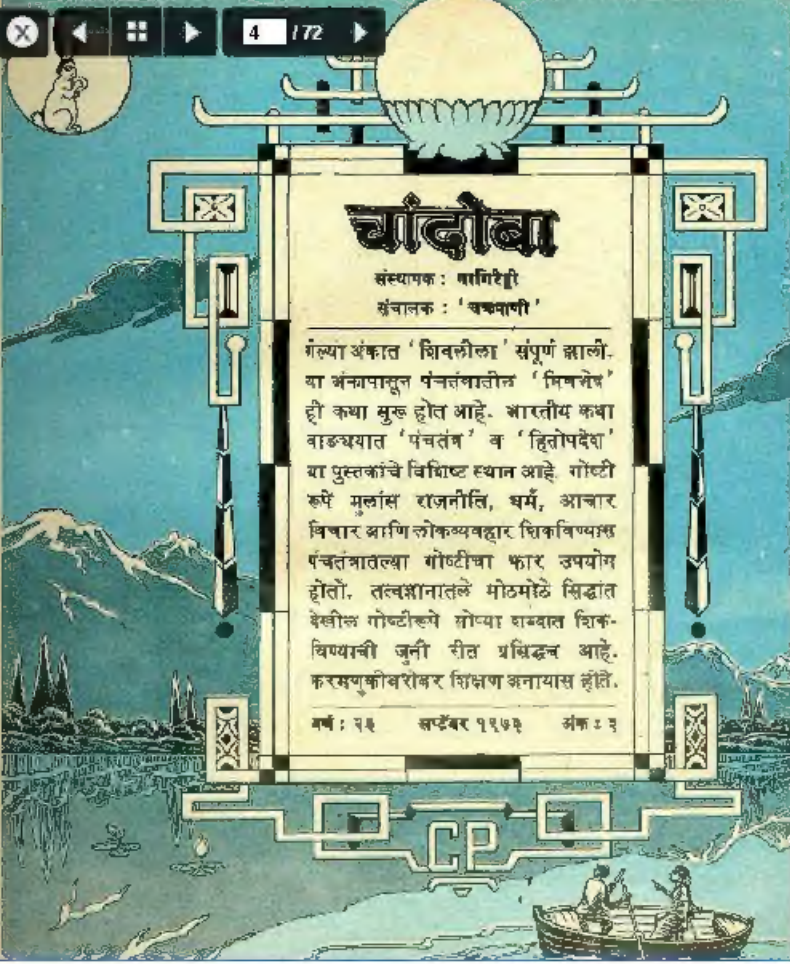 4 / 72
चांदोबा
संस्थापक : नागिरेड्डी
संचालक : 'चक्रपाणी'
गेल्या अंकात 'शिवलीला' संपूर्ण झाली.
या अंकापासून पंचतंत्रातील 'मित्रभेद'
ही कथा सुरू होत आहे. भारतीय कथा
वाङ्मयात 'पंचतंत्र' व 'हितोपदेश'
या पुस्तकांचे विशिष्ट स्थान आहे. गोष्टी
रूपें मुलांस राजनीति, धर्म, आचार
विचार आणि लोकव्यवहार शिकविण्यास
पंचतंत्रातल्या गोष्टीचा फार उपयोग
होतो. तत्वज्ञानातले मोठमोठे सिद्धांत
देखील गोष्टीरूपे सोप्या शब्दात शिक-
विण्याची जुनी रीत प्रसिद्धच आहे.
करमणुकीबरोबर शिक्षण अनायास होते.
वर्ष : सप्टेंबर १९७३ अंक :
CP